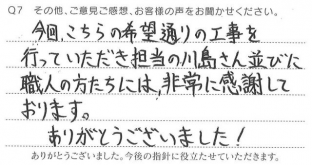 Q7 その他、ご意見ご感想、お客様の声をお聞かせください。
今回、こちらの希望通りの工事を
行っていただき担当の川島さん並びに
職人の方たちには、非常に感謝して
おります。
ありがとうございました!
ありがとうございました。今後の指針に役立たせていただきます。